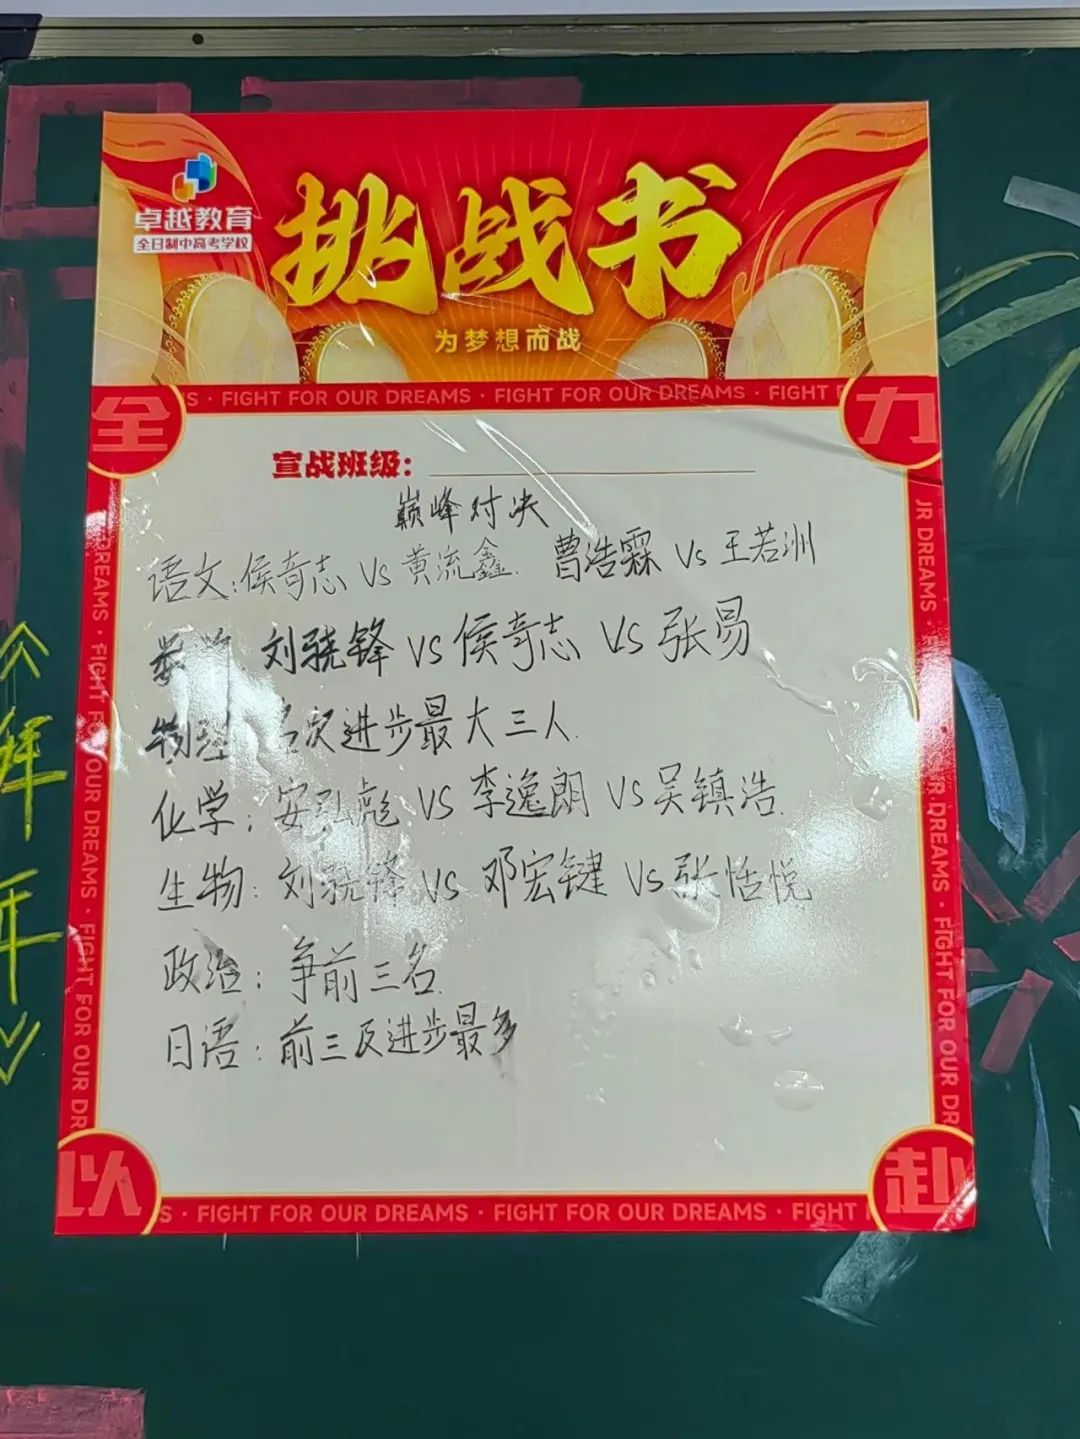 卓越教育
全日制中高考学校
挑战书
为梦想而战
S · FIGHT FOR OUR DREAMS · FIGHT FOR OUR DREAMS · FIGHT F
全
力
宣战班级：
巅峰对决
语文:侯奇志 VS 黄流鑫 曹浩霖 VS 王若洲
刘骁锋 VS 侯奇志 VS 张易
物理 名次进步最大三人.
化学: 安弘彪 VS 李逸朗 VS 吴镇浩.
生物: 刘骁锋 VS 邓宏键 VS 张恬悦
政治: 争前三名.
日语: 前三及进步最多
DREAMS · FIGHT FOR OUR DREAMS · FIGHT FOR OUR DR
UR DREAMS · FIGHT FOR OUR DREAMS · FIGHT FOR OUR DR
以
赴
S · FIGHT FOR OUR DREAMS · FIGHT FOR OUR DREAMS · FIGHT F